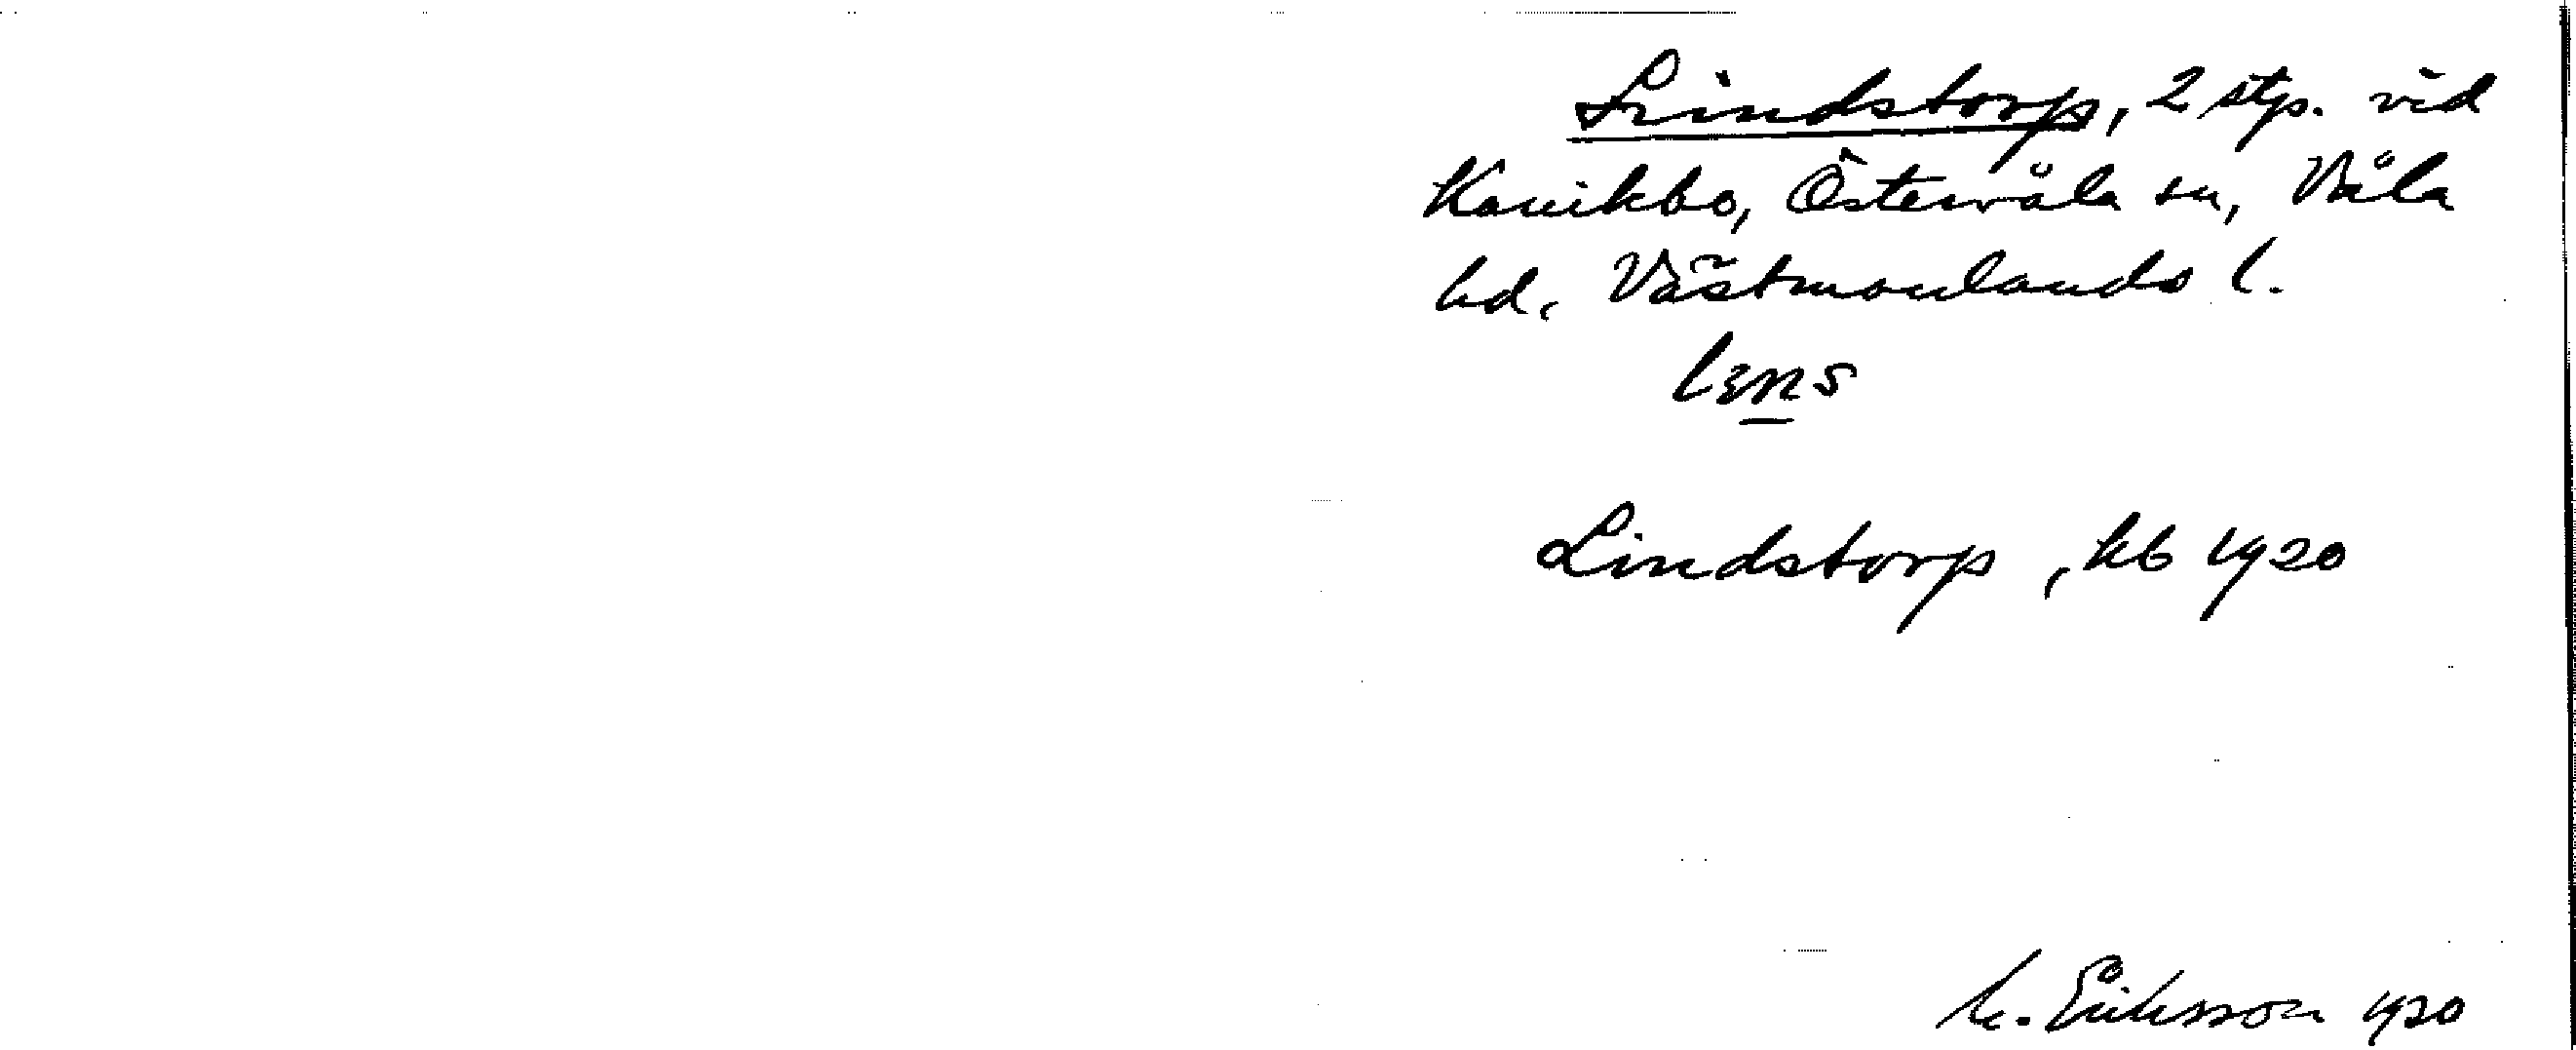 Lindstorp, 2 stp. vid
Kanikbo, Östervåla sn, Våla
hd. Västmanlands l.
Lindstorp, kb 1920
M. Eriksson 1920